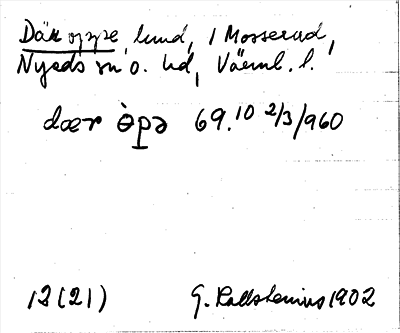 Där oppe, lund, / Mosserud,
Nyeds sn o. hd, Värml. l.
dær òpə 69.10 2/3/960
12 (21) G. Kallstenius 1902